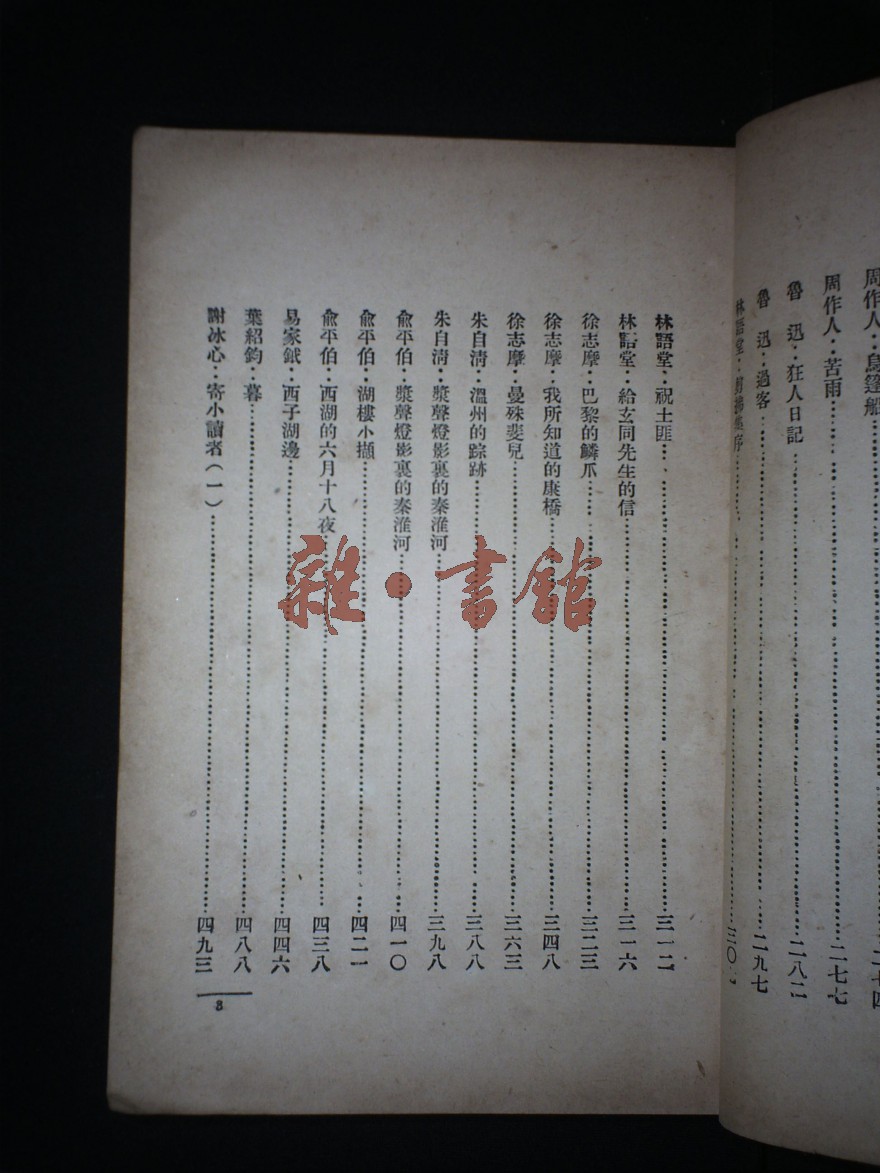 周作人‥烏篷船……二七四
周作人‥苦雨……二七七
魯　迅‥狂人日記……二八二
魯　迅‥過客……二九七
林語堂‥翦拂集序……三〇
林語堂‥祝土匪……三一二
林語堂‥給玄同先生的信……三一六
徐志摩‥巴黎的鱗爪……三二三
徐志摩‥我所知道的康橋……三四八
徐志摩‥曼殊斐兒……三六三
朱自清‥溫州的踪跡……三八八
朱自清‥槳聲燈影裏的秦淮河……三九八
俞平伯‥槳聲燈影裏的秦淮河……四一〇
俞平伯‥湖樓小擷……四二一
俞平伯‥西湖的六月十八夜……四三八
易家鉞‥西子湖邊……四四六
葉紹鈞‥暮……四八八
謝冰心‥寄小讀者（一）……四九三
3
雜·書館